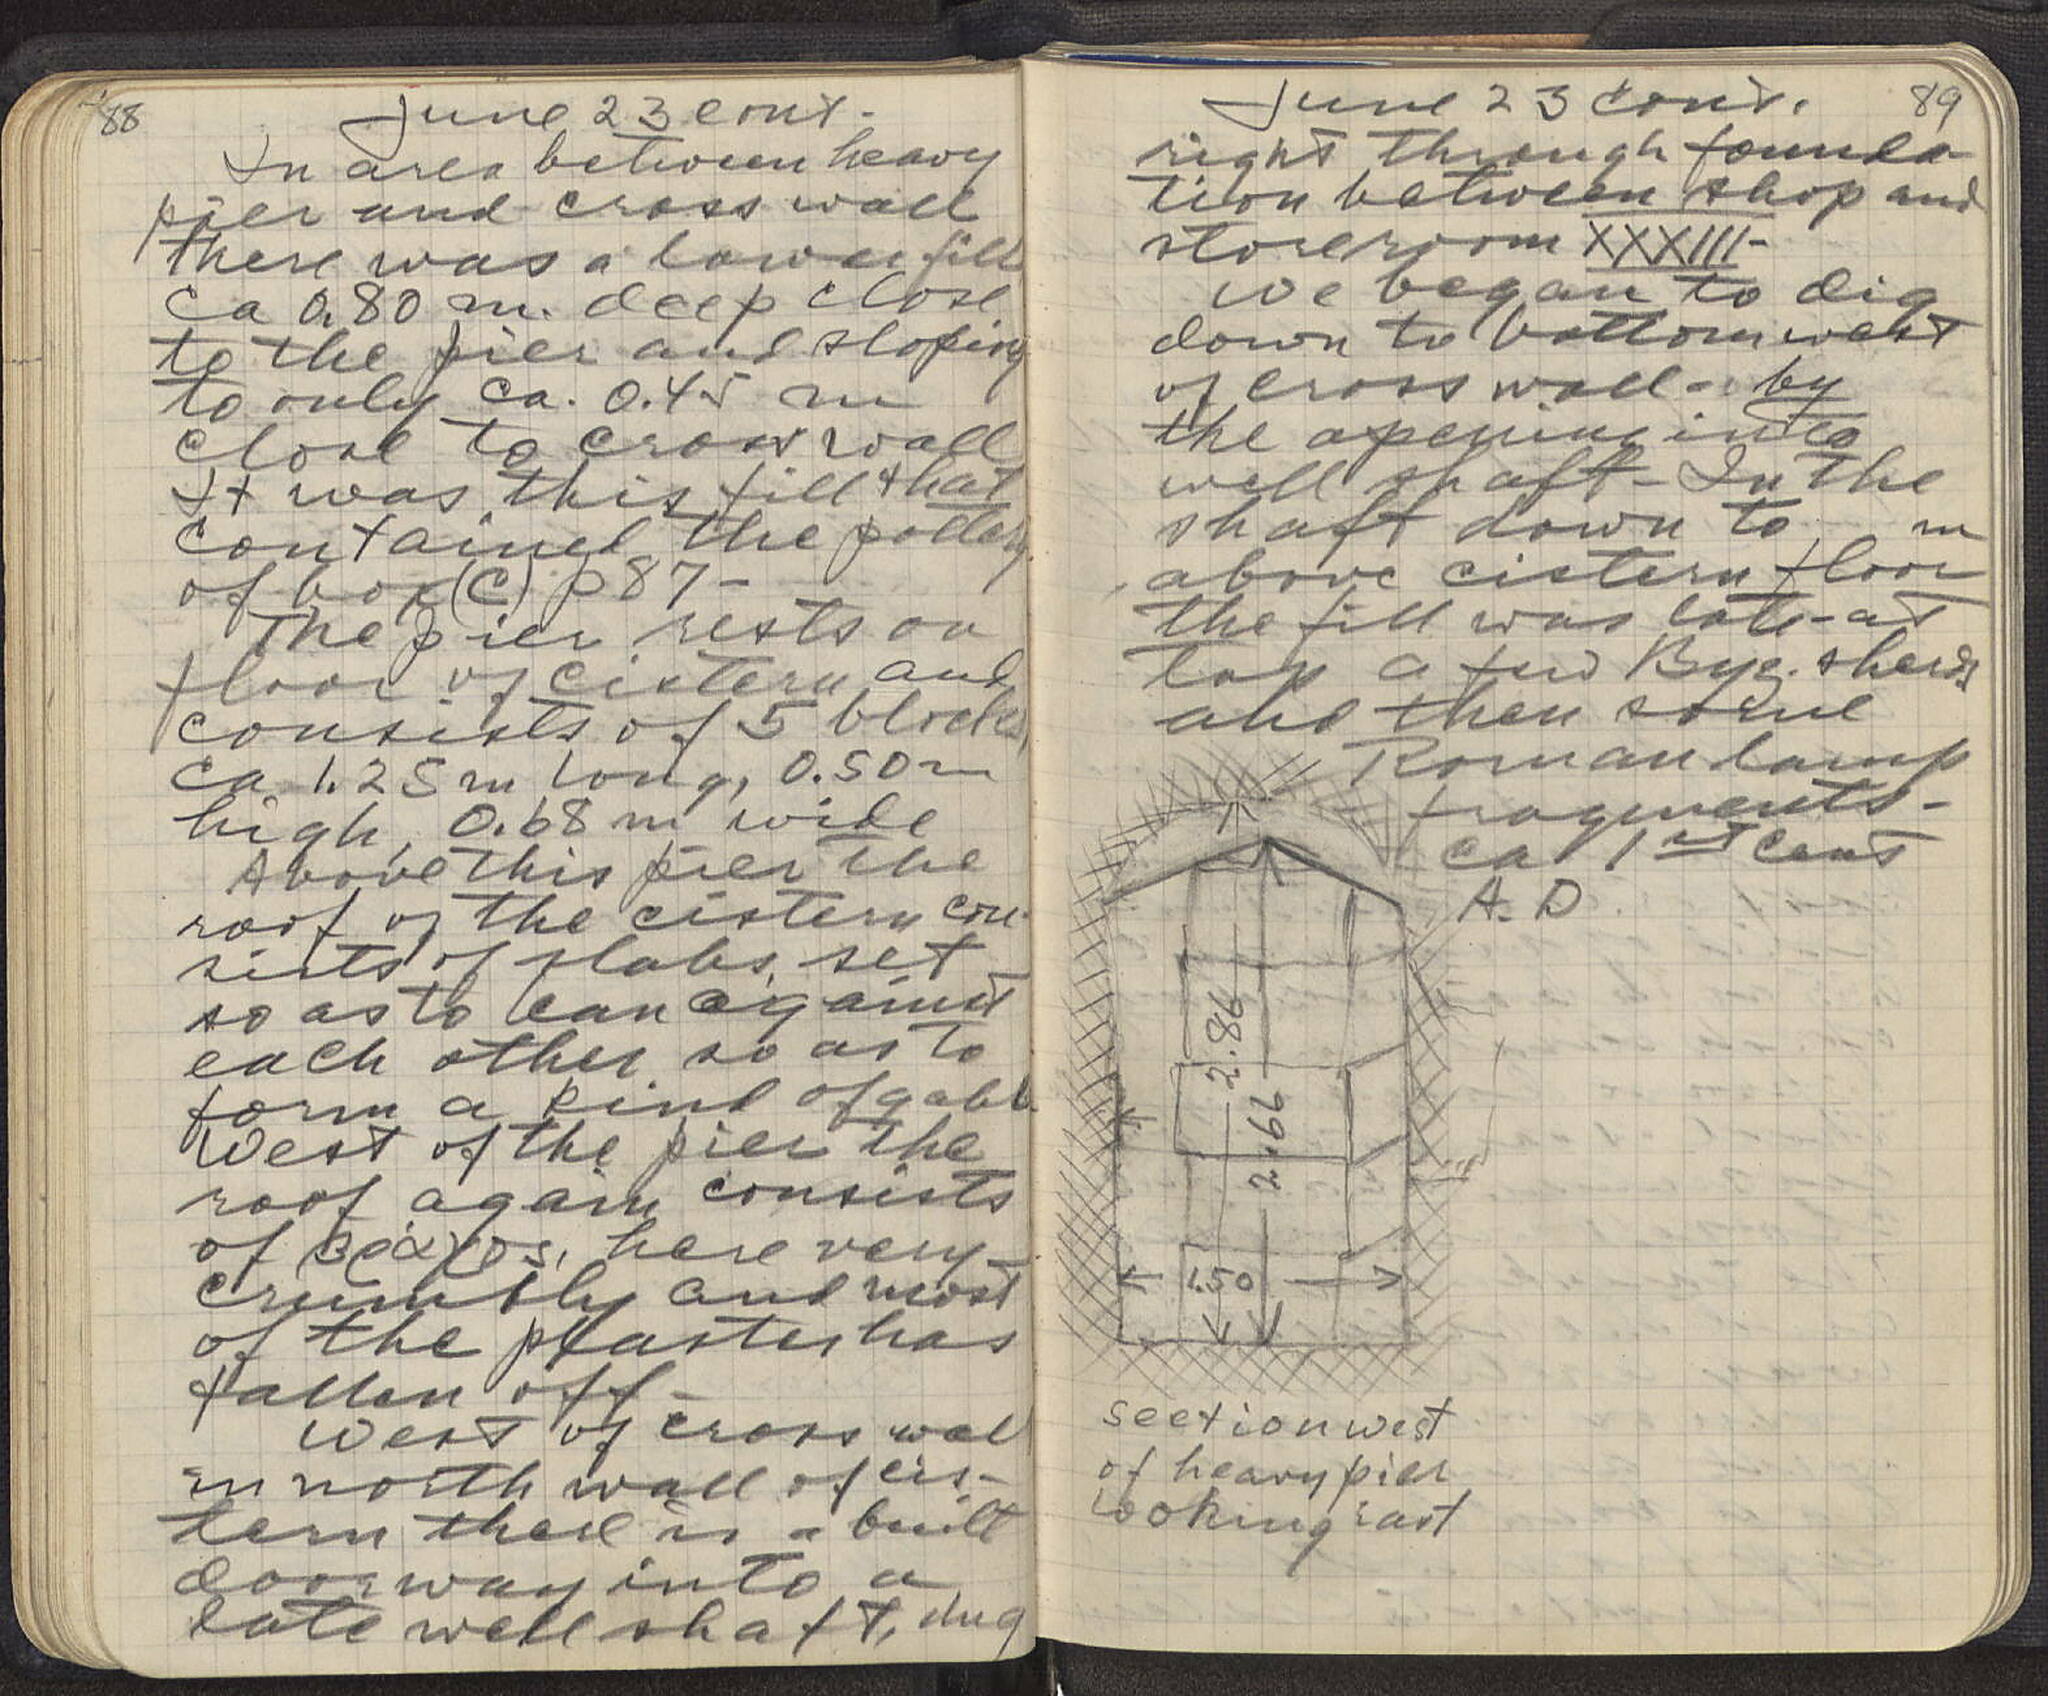 88
June 23 cont.
In area between heavy
pier and cross wall
there was a lower fill
ca 0.80 m. deep close
to the pier and sloping
to only ca. 0.45 m
close to cross wall
It was this fill that
contained the pottery
of box (C) p 87-
The pier rests on
floor of cistern and
consists of 5 blocks,
ca 1.25 m long, 0.50 m
high, 0.68 m wide
Above this pier the
roof of the cistern con-
sists of slabs set
so as to lean against
each other so as to
form a kind of gable
West of the pier the
roof again consists
of βράχος, here very
crumbly and most
of the plaster has
fallen off-
West of cross wall
in north wall of cis-
tern there is a built
doorway into a
late well shaft, dug
89
June 23 cont.
right through founda-
tion between shop and
storeroom XXXIII-
We began to dig
down to bottom west
of cross wall - by
the opening into
well shaft - In the
shaft down to m
above cistern floor
the fill was late - at
top a few Byz. sherds
and then some
Roman lamp
fragments-
ca 1st cent
A.D
2.86
2.66
1.50
section west
of heavy pier
looking east